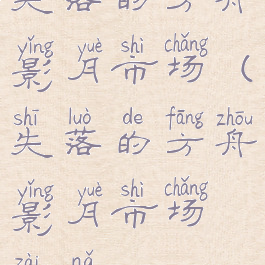 失落的方舟
yǐng yuè shì chǎng
影月市场（
shī luò de fāng zhōu
失落的方舟
yǐng yuè shì chǎng
影月市场
zài nǎ